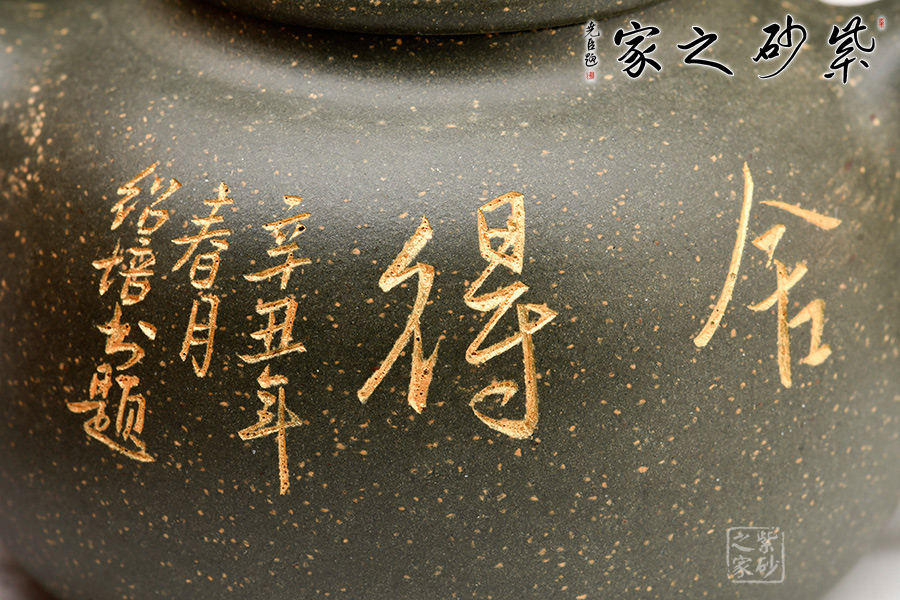 紫砂之家
尧臣题
舍得
辛丑年
春月
绍培书题
紫砂
之家